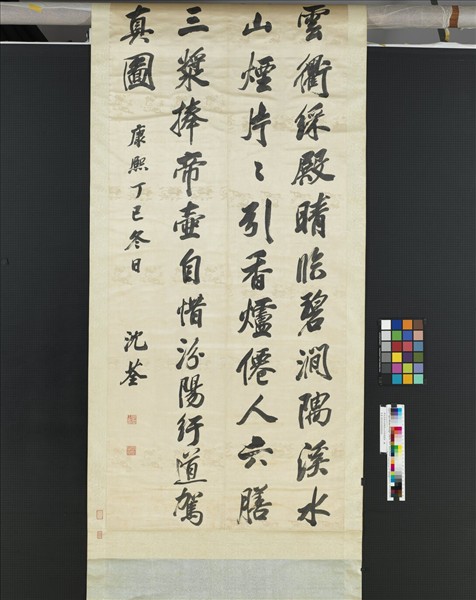 雲衢綵殿晴臨碧澗隅溪水
山煙片〻引香爐僊人六膳
三漿捧帝壺自惜汾陽行道駕
真圖
康熙丁巳冬日
沈荃